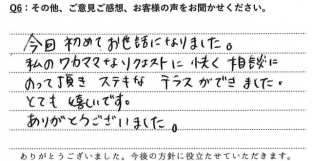 Q6：その他、ご意見ご感想、お客様の声をお聞かせください。
今回 初めて お世話になりました。
私のワガママなリクエストに 快く 相談に
のって頂き ステキな テラスができました。
とても 嬉しいです。
ありがとうございました。
ありがとうございました。今後の方針に役立たせていただきます。